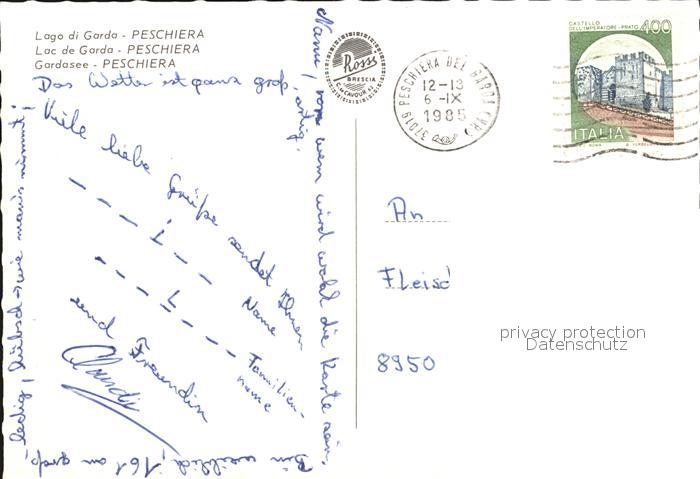 Lago di Garda - PESCHIERA
Lac de Garda - PESCHIERA
Gardasee - PESCHIERA
Rossi
BRESCIA
C. CAVOUR
37019 PESCHIERA DEL GARDA
12-13
6-IX
1985
CASTELLO
DELL'IMPERATORE - PRATO
400
ITALIA
Das Wetter ist ganz groß-
artig.
Viele liebe Grüße sendet Ihnen
- - - i - -
Name
- - - - - -
Familien-
name
und Freundin
Claudi
Nanu, von wem wird wohl die Karte sein.
Bin weiblich, 161 cm groß,
ledig, hübsch - wie man's nimmt!
An
Fleisch
8950
privacy protection
Datenschutz